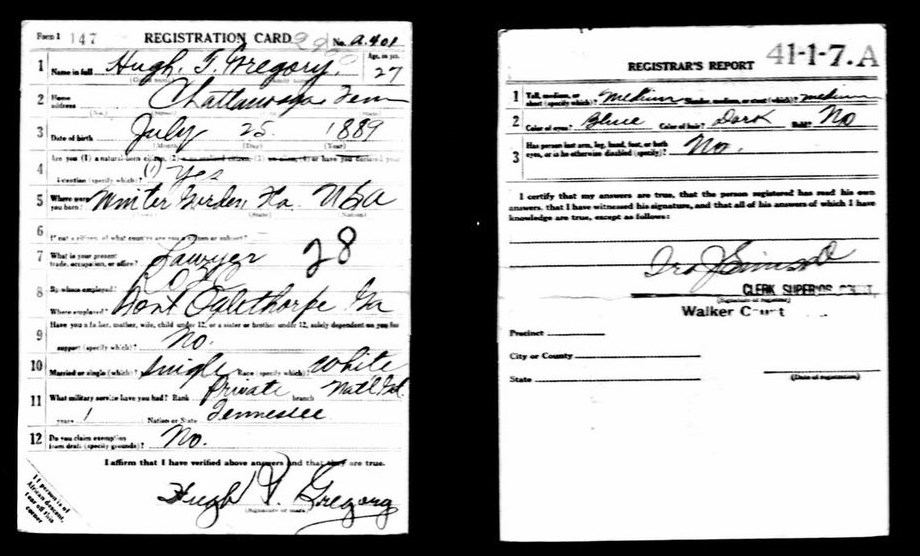 Form 1 147 REGISTRATION CARD No. A.401
1 Name in full Hugh. T. Gregory. Age, in yrs. 27
2 Home address Chattanooga Tenn
3 Date of birth July 25 1889
(Month) (Day) (Year)
4 Are you (1) a natural-born citizen, (2) a naturalized citizen, (3) an alien, (4) or have you declared your
intention (specify which)? (1) Yes
5 Where were you born? Winter Garden Fla. USA
(State) (Nation)
6 If not a citizen, of what country are you a citizen or subject?
7 What is your present trade, occupation, or office? Lawyer 28
8 By whom employed?
Where employed? Fort Oglethorpe Ga
9 Have you a father, mother, wife, child under 12, or a sister or brother under 12, solely dependent on you for
support (specify which)? No.
10 Married or single (which)? Single Race (specify which)? White
11 What military service have you had? Rank Private branch Natl Gd.
years 1 Nation or State Tennessee
12 Do you claim exemption from draft (specify grounds)? No.
I affirm that I have verified above answers and that they are true.
Hugh T. Gregory
(Signature or mark)
If person is of
African descent,
tear off this
corner
REGISTRAR'S REPORT 41-1-7.A
1 Tall, medium, or short (specify which)? medium Slender, medium, or stout (which)? medium
2 Color of eyes? Blue Color of hair? Dark Bald? No
3 Has person lost arm, leg, hand, foot, or both
eyes, or is he otherwise disabled (specify)? No.
I certify that my answers are true, that the person registered has read his own
answers, that I have witnessed his signature, and that all of his answers of which I have
knowledge are true, except as follows:
CLERK SUPERIOR COURT,
(Signature of registrar)
Walker
Precinct
City or County
State
(Date of registration)